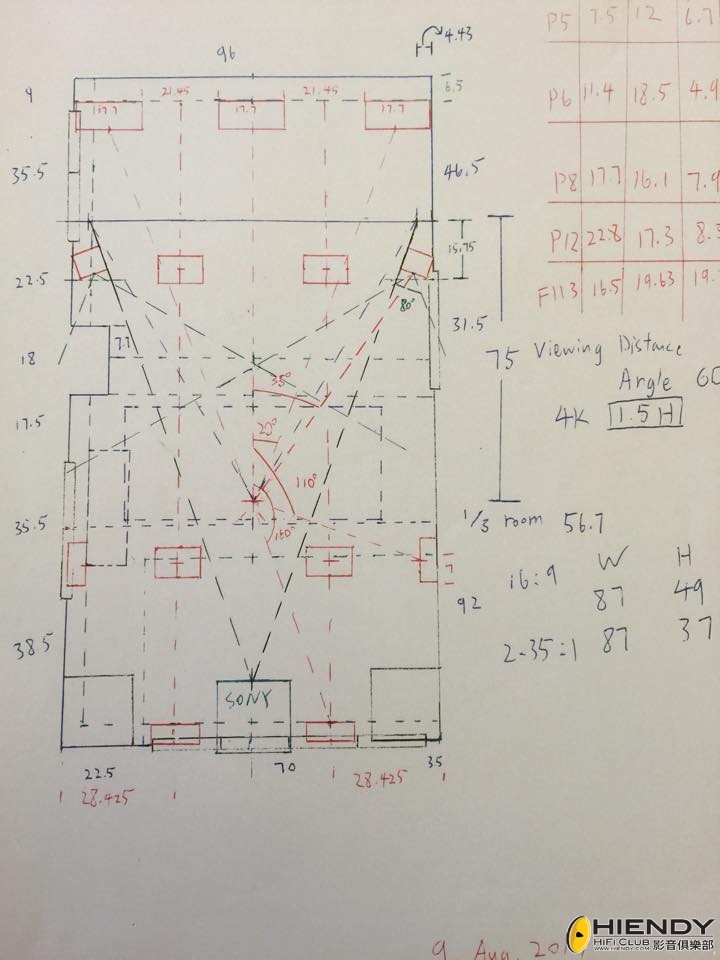 96
4.43
P5 7.5 12 6.7
9
21.45
21.45
6.5
17.7
17.7
17.7
P6 11.4 18.5 4.9
35.5
46.5
P8 17.7 16.1 7.9
15.75
P12 22.8 17.3 8.3
22.5
80°
F113 16.5 19.63 19.
31.5
18
7.7
75 Viewing Distance
35°
Angle 60
4K 1.5H
17.5
20°
110°
35.5
1/3 room 56.7
W H
160°
16:9
87 49
92
2.35:1 87 37
38.5
SONY
22.5
70
35
28.425
28.425
9 Aug. 20
HIENDY
HiFi CLUB 影音俱樂部
WWW.HIENDY.COM